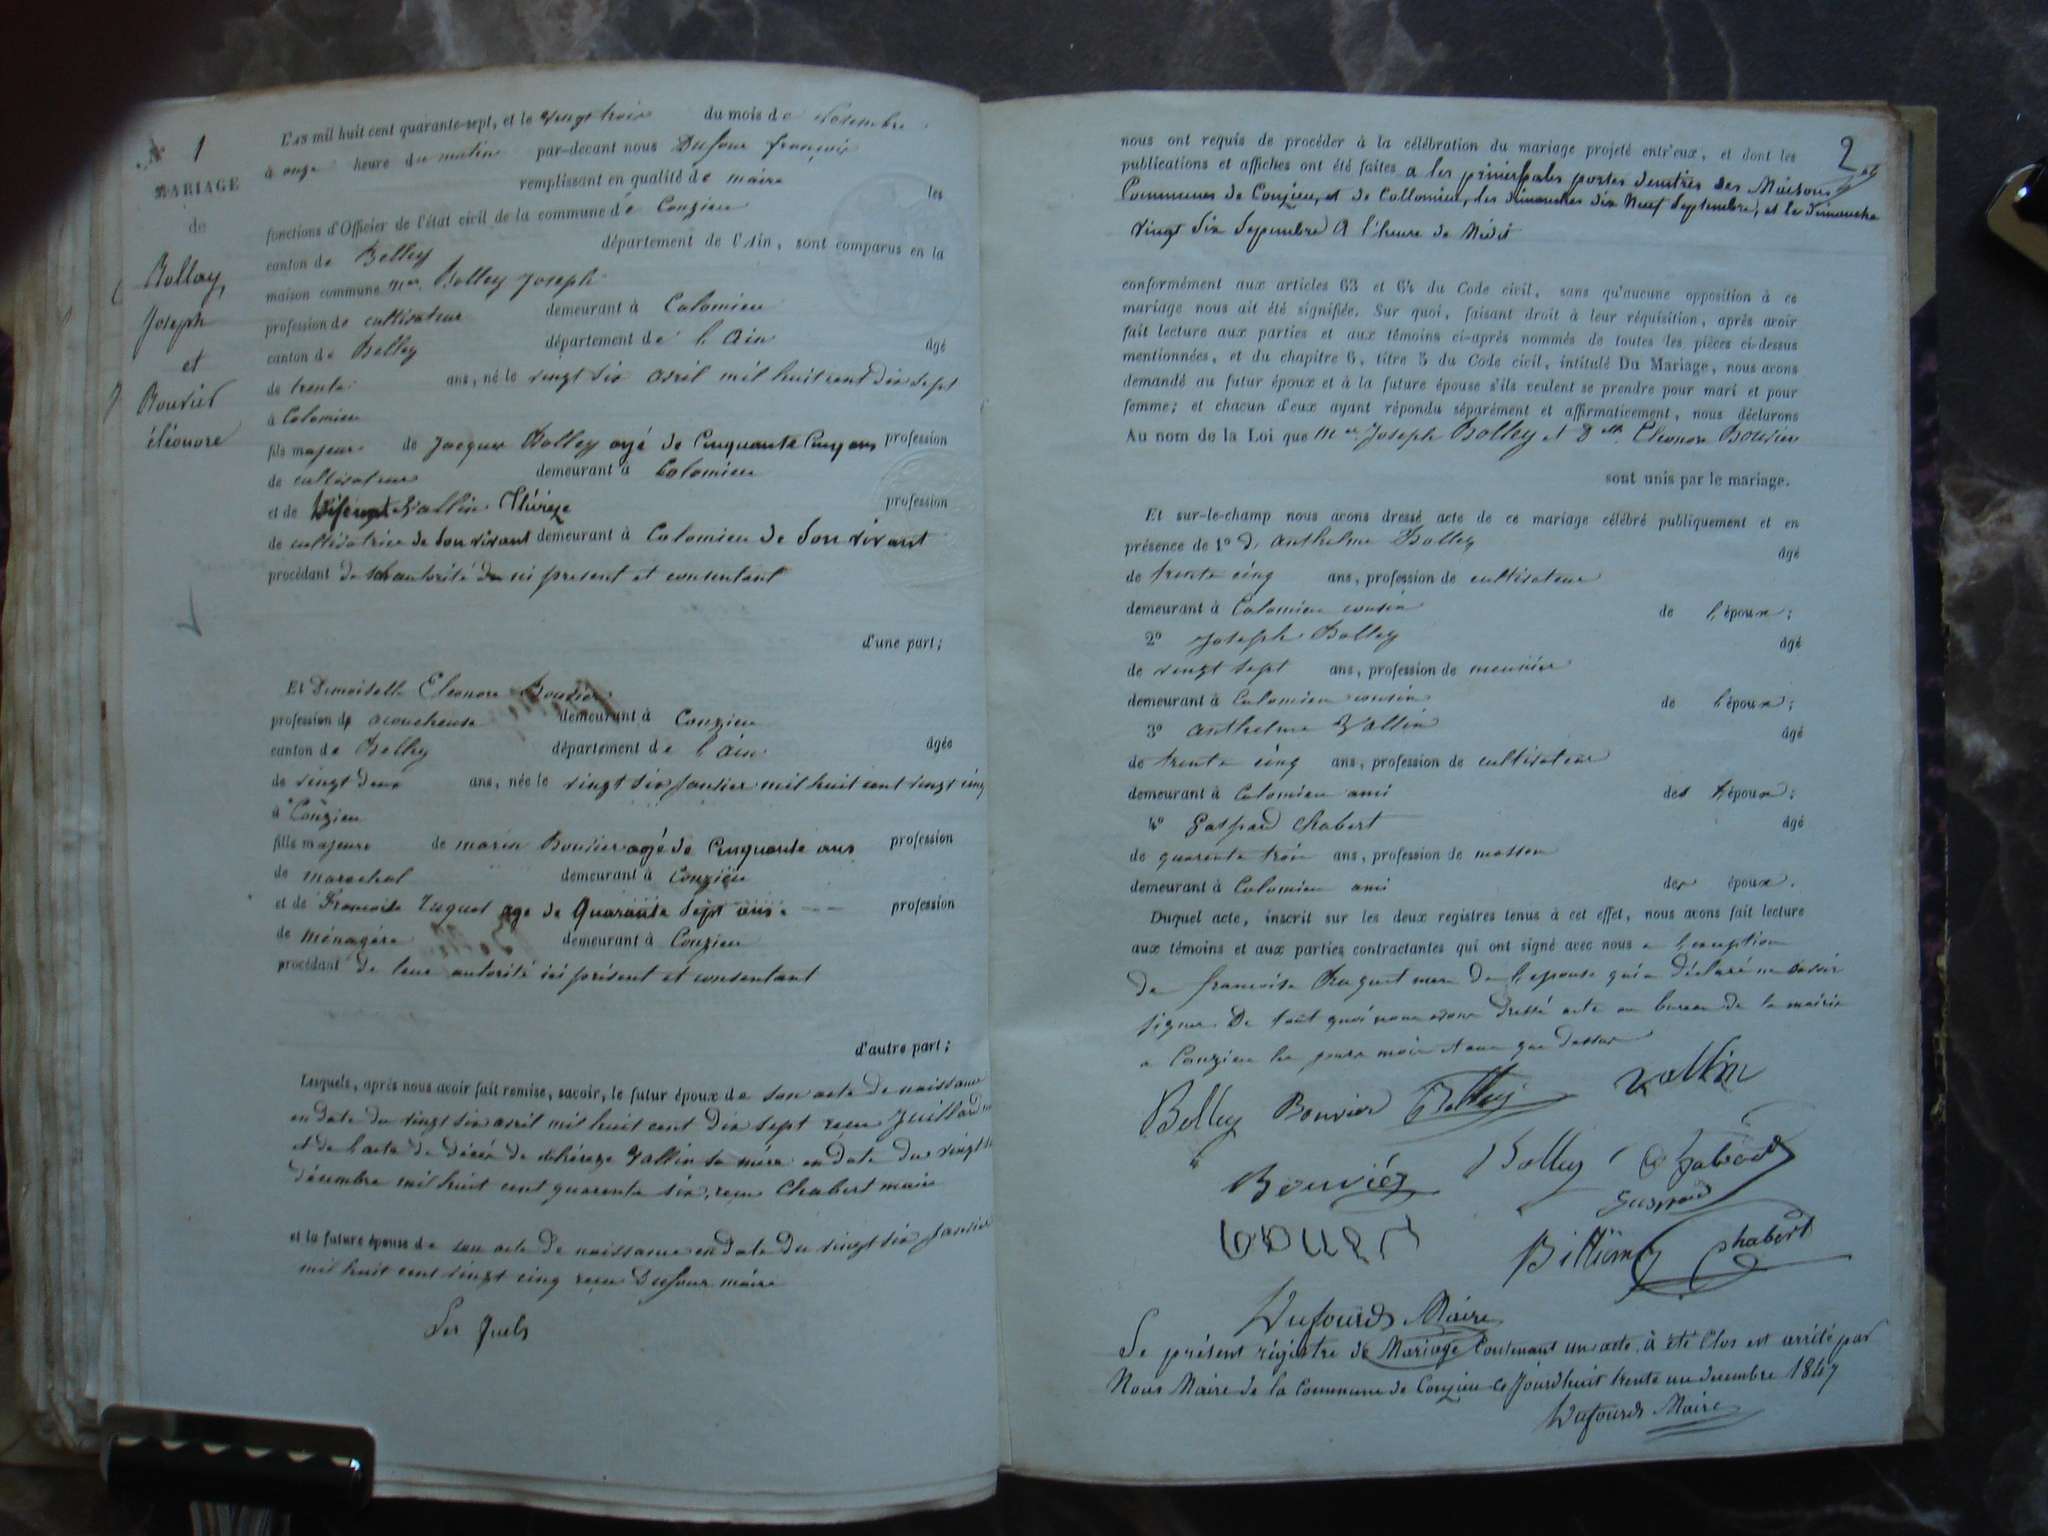 N° 1
MARIAGE
de
Bolley,
Joseph
et
Bouvier
éléonore
L'AN mil huit cent quarante-sept, et le vingt trois du mois de novembre
à onze heure du matin par-devant nous Dufour françois
remplissant en qualité de maire les
fonctions d'Officier de l'état civil de la commune de Conzieu
canton de Belley département de l'Ain, sont comparus en la
maison commune mr. Bolley Joseph
profession de cultivateur demeurant à Colomieu
canton de Belley département de l'Ain âgé
de trente ans, né le vingt six avril mil huit cent dix sept
à Colomieu
fils majeur de Jacques Bolley agé de Cinquante Cinq ans profession
de cultivateur demeurant à Colomieu
et de Vallin Thérèze profession
de cultivatrice de Son vivant demeurant à Colomieu de Son vivant
procédant de son autorité ici présent et consentant
d'une part;
Et Demoiselle Eleonore Bouvier
profession de acoucheuse demeurant à Conzieu
canton de Belley département de l'Ain âgée
de vingt deux ans, née le vingt six Janvier mil huit cent vingt cinq
à Conzieu
fille majeure de marin Bouvier agé de Cinquante ans profession
de marechal demeurant à Conzieu
et de Francoise age de Quarante Sept ans profession
de ménagère demeurant à Conzieu
procédant de leur autorité ici présent et consentant
d'autre part;
Lesquels, après nous avoir fait remise, savoir, le futur époux de son acte de naissance
en date du vingt six avril mil huit cent dix sept recu Juillard
et de l'acte de décès de thérèze Vallin sa mère en date du vingt
décembre mil huit cent quarente six, recu Chabert maire
et la future épouse de son acte de naissance en date du vingt six Janvier
mil huit cent vingt cinq recu Dufour maire
Les Quels
2
nous ont requis de procéder à la célébration du mariage projeté entr'eux, et dont les
publications et affiches ont été faites a les principales portes dentrés des Maisons
Communes de Conzieu, et de Collomieu, les dimanches dix Neuf Septembre, et le dimanche
vingt six Sepembre A l'heure de Midi
conformément aux articles 63 et 64 du Code civil, sans qu'aucune opposition à ce
mariage nous ait été signifiée. Sur quoi, faisant droit à leur réquisition, après avoir
fait lecture aux parties et aux témoins ci-après nommés de toutes les pièces ci-dessus
mentionnées, et du chapitre 6, titre 5 du Code civil, intitulé Du Mariage, nous avons
demandé au futur époux et à la future épouse s'ils veulent se prendre pour mari et pour
femme; et chacun d'eux ayant répondu séparément et affirmativement, nous déclarons
Au nom de la Loi que mr. Joseph Bolley et dlle. Eléonore Bouvier
sont unis par le mariage.
Et sur-le-champ nous avons dressé acte de ce mariage célébré publiquement et en
présence de 1° d. Anthelme Bolley âgé
de trente cinq ans, profession de cultivateur
demeurant à Colomieu cousin de l'époux;
2° Joseph Bolley âgé
de vingt sept ans, profession de meunier
demeurant à Colomieu cousin de l'époux;
3° Anthelme Vallin âgé
de trente cinq ans, profession de cultivateur
demeurant à Colomieu ami des époux;
4° Gaspard Chabert âgé
de quarente trois ans, profession de masson
demeurant à Colomieu ami des époux.
Duquel acte, inscrit sur les deux registres tenus à cet effet, nous avons fait lecture
aux témoins et aux parties contractantes qui ont signé avec nous a l'exeption
de francoise mere de l'epouse qui a déclaré ne savoir
signer De tout quoi nous avons dressé acte au bureau de la mairie
a Conzieu les jours mois et an que dessus
Bolley Bouvier Bolley Vallin
Bouvier Bolley Chabert
Gaspard
Billiemaz Chabert
Dufour Maire
Le présent régistre de Mariage Contenant un acte, à été Clos est arrété par
Nous Maire de la Commune de Conzieu ce Jourdhuit trente un decembre 1847
Dufour Maire